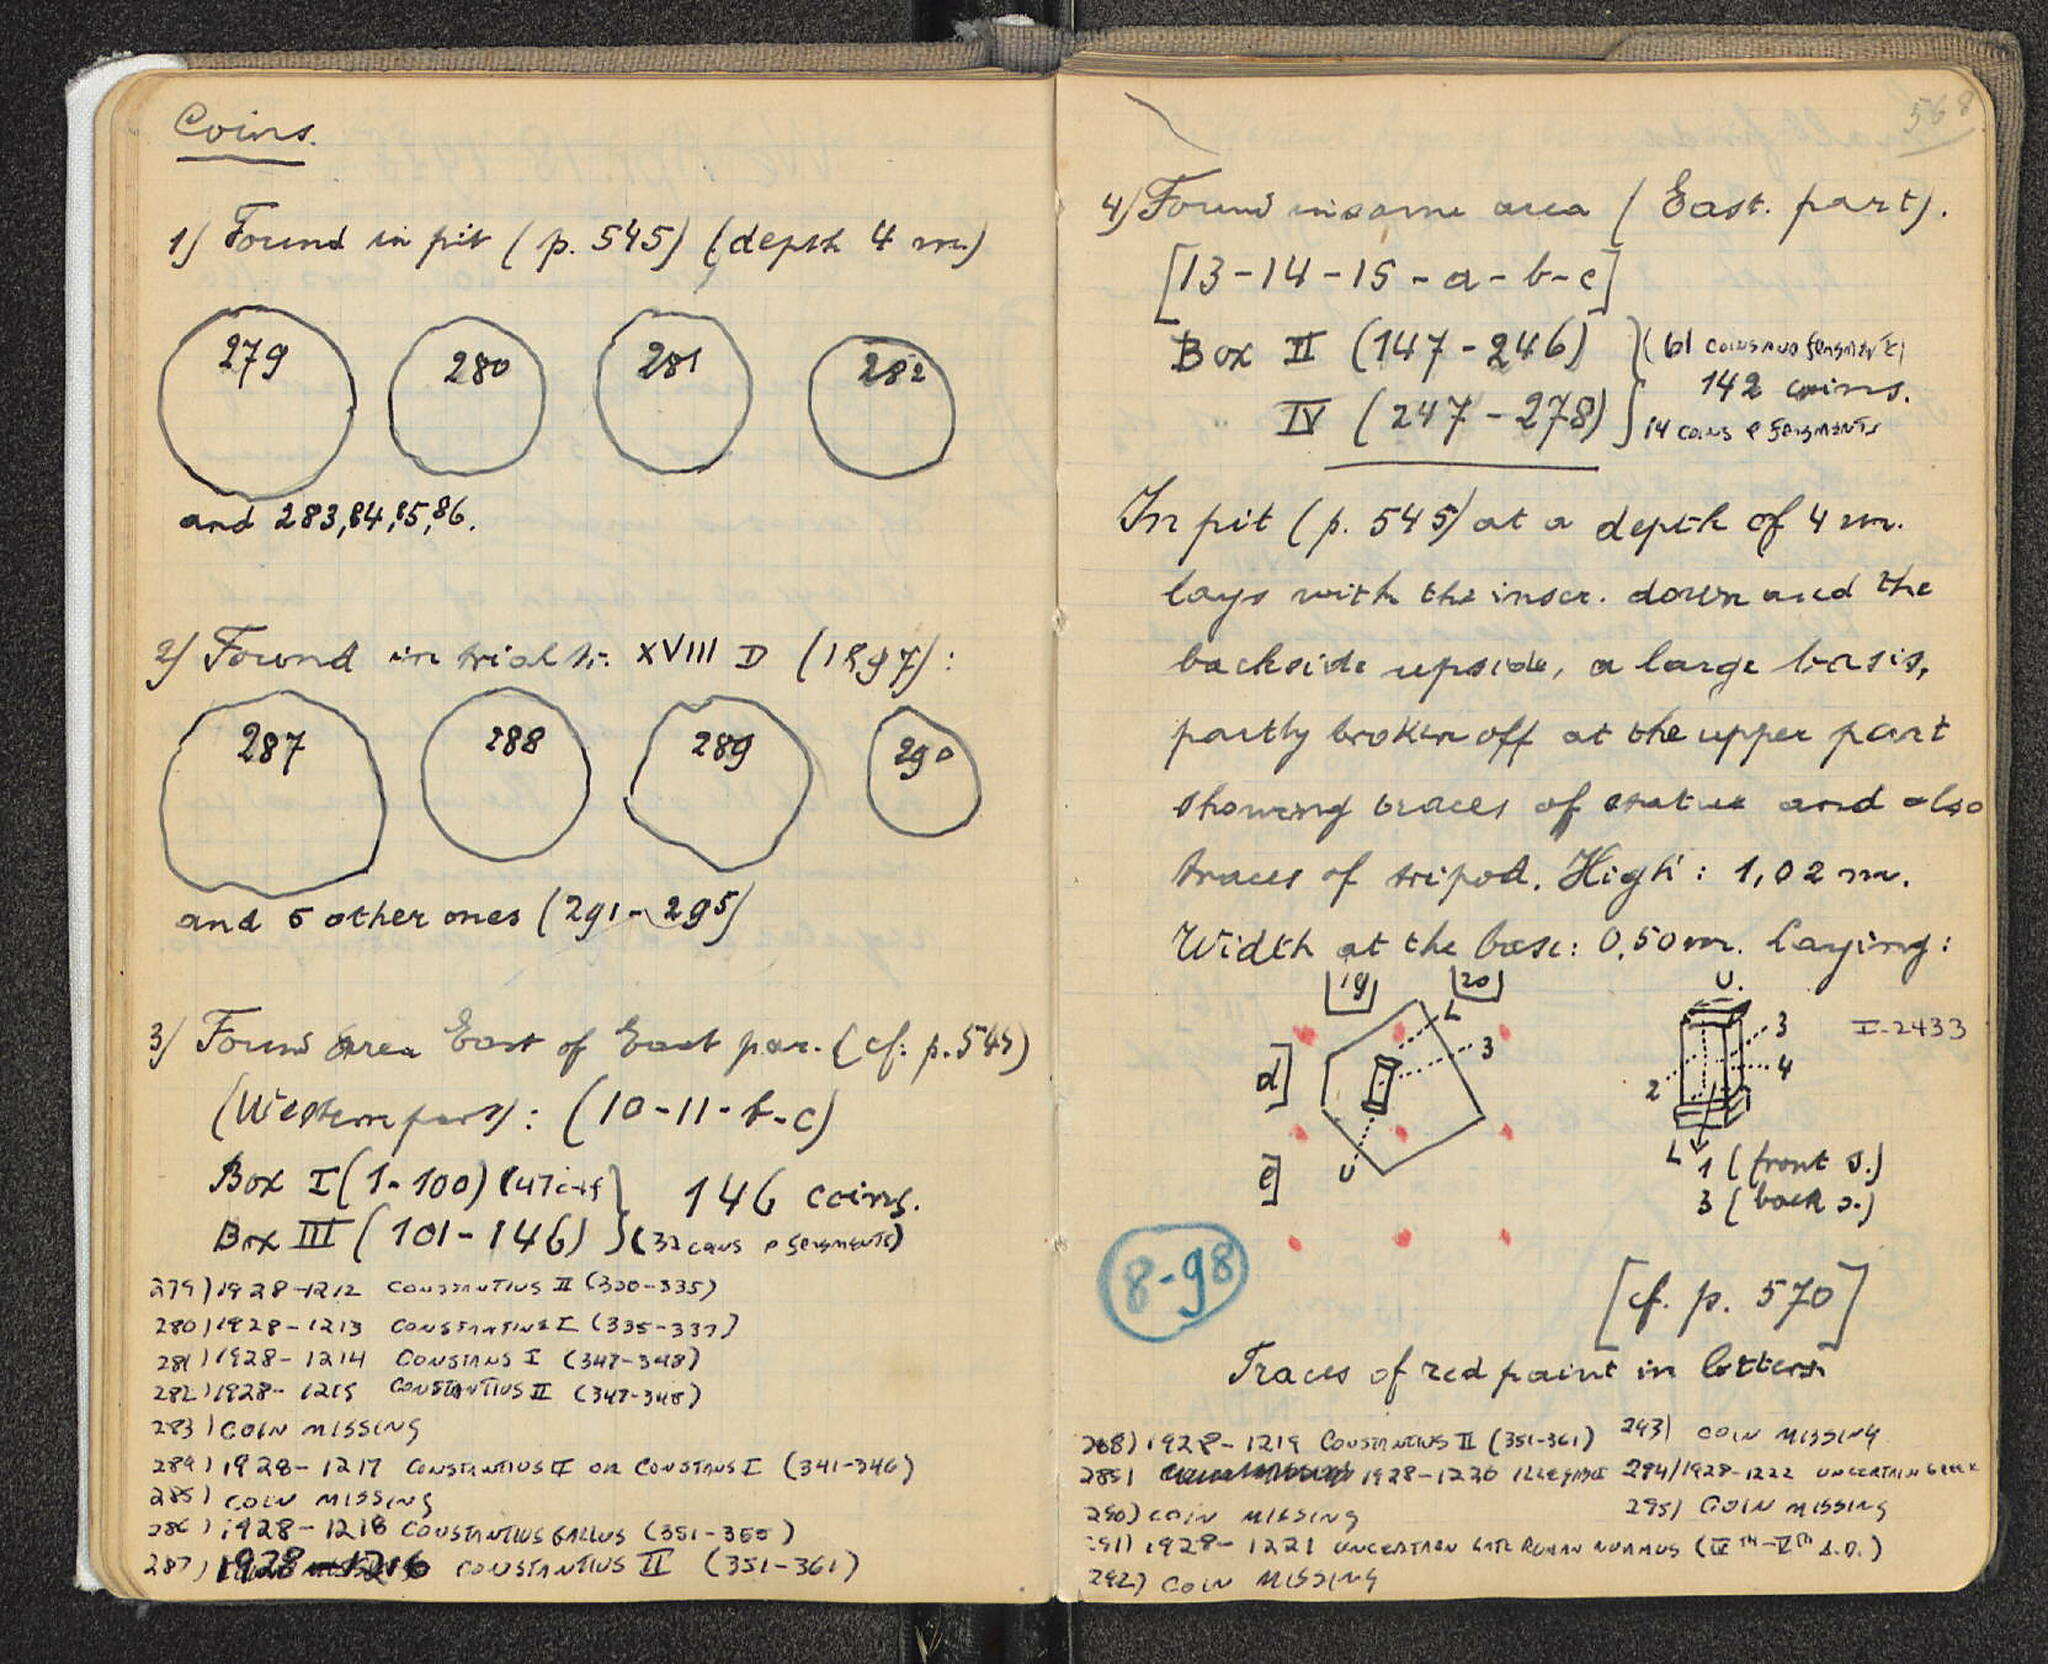 Coins.
1) Found in pit (p. 545) (depth 4 m.)
279 280 281 282
and 283, 84, 85, 86.
2) Found in trial tr. XVIII D (1897):
287 288 289 290
and 5 other ones (291-295)
3) Found area East of East par. (cf: p. 545)
(Western part): (10-11-b-c)
Box I (1-100) (47 c+f
146 coins.
Box III (101-146) (32 coins e fragments)
279) 1928-1212 CONSTANTIUS II (330-335)
280) 1928-1213 CONSTANTINE I (335-337)
281) 1928-1214 CONSTANS I (347-348)
282) 1928-1215 CONSTANTIUS II (347-348)
283) COIN MISSING
284) 1928-1217 CONSTANTIUS II OR CONSTANS I (341-346)
285) COIN MISSING
286) 1928-1218 CONSTANTIUS GALLUS (351-355)
287) 1928-1216 CONSTANTIUS II (351-361)
568
4) Found in same area (East. part).
[13-14-15-a-b-c]
Box II (147-246) (61 coins and fragments)
142 coins.
IV (247-278) 14 coins e fragments
In pit (p. 545) at a depth of 4 m.
lays with the inscr. down and the
backside upside, a large basis,
partly broken off at the upper part
showing traces of statue and also
traces of tripod. High: 1,02 m.
Width at the base: 0,50 m. Laying:
19 20 U.
L 3 3 I-2433
d] 2 4
U L 1 (front s.)
e] 3 (back s.)
8-98
[cf. p. 570]
Traces of red paint in letters
288) 1928-1219 CONSTANTIUS II (351-361) 293) COIN MISSING
289) 1928-1220 ILLEGIBLE 294) 1928-1222 UNCERTAIN GREEK
290) COIN MISSING 295) COIN MISSING
291) 1928-1221 UNCERTAIN LATE ROMAN NUMMUS (IVTH-VTH A.D.)
292) COIN MISSING